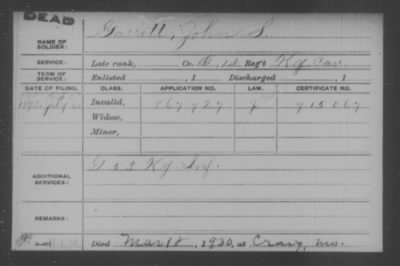 DEAD
NAME OF SOLDIER: Garrett, John S.
SERVICE: Late rank, Co. 1st Reg't Ky. Cav.
TERM OF SERVICE: Enlisted , 1 Discharged , 1
DATE OF FILING. CLASS. APPLICATION NO. LAW. CERTIFICATE NO.
1890, July Invalid, 867927 915067
Widow,
Minor,
ADDITIONAL SERVICES: G 53 Ky Inf.
REMARKS:
Died Mar 18, 1920, at Craig, Mo.